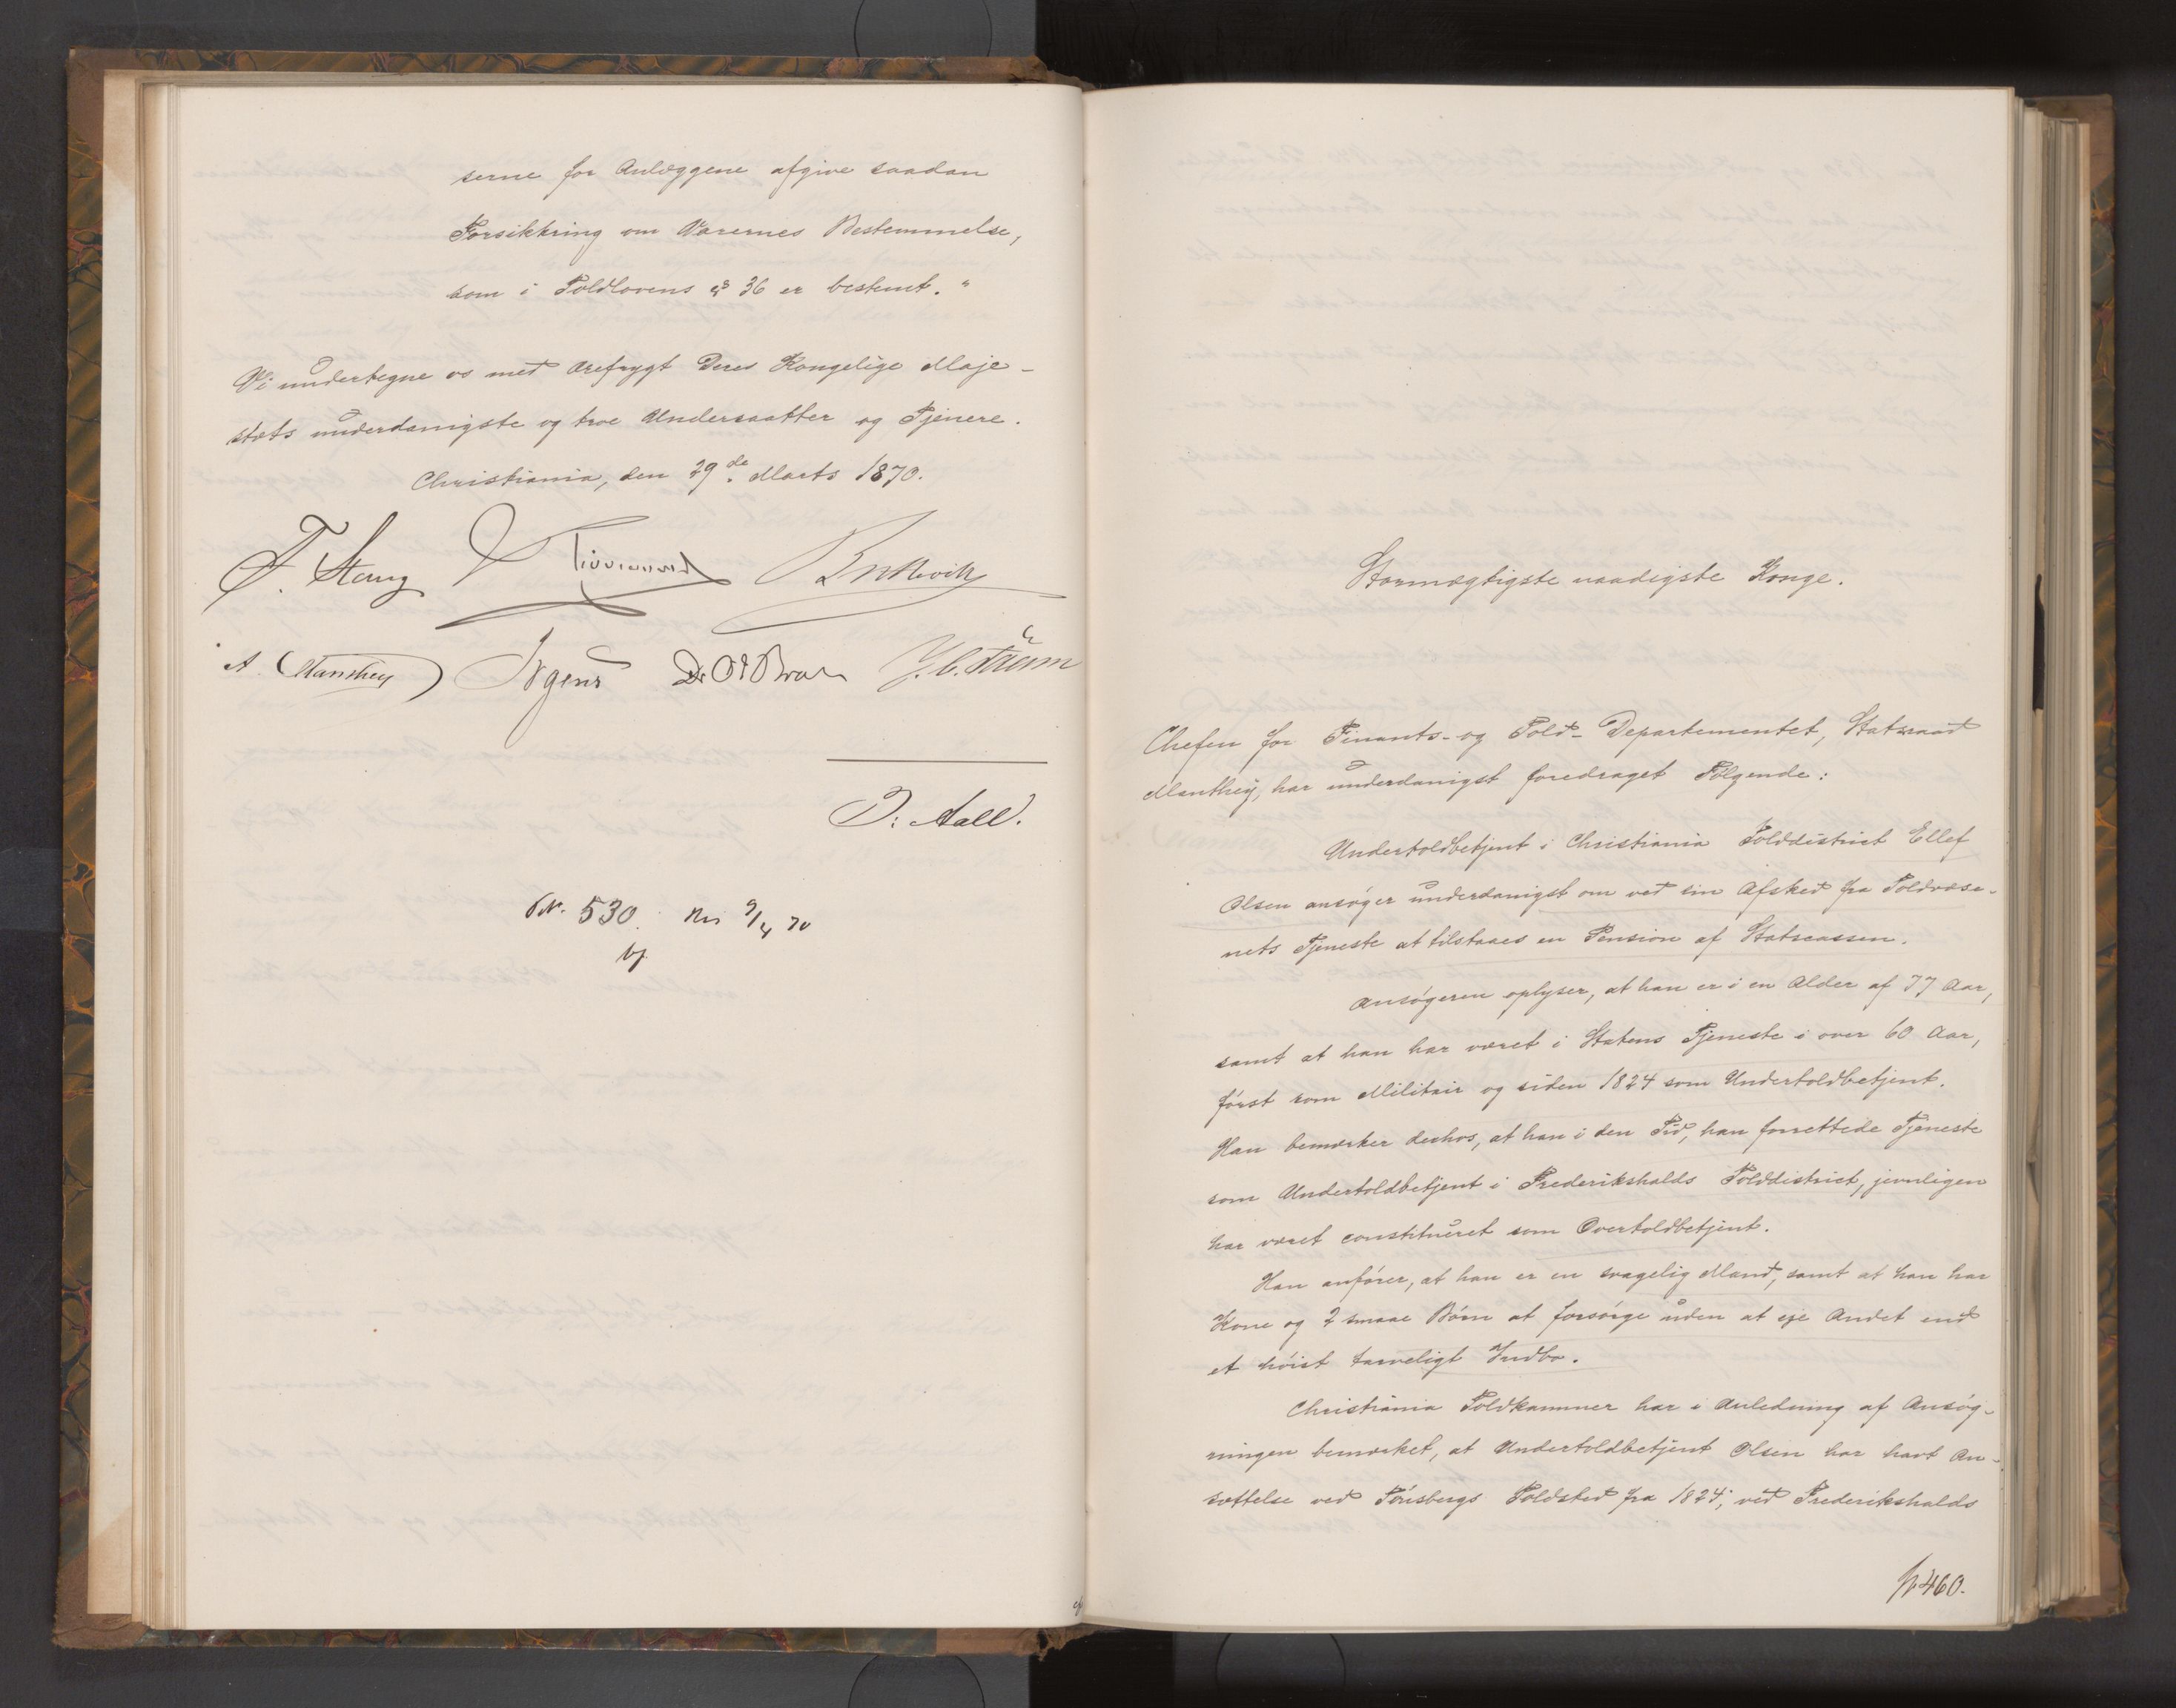 serne for Anlæggene afgive saadan
Forsikkring om Varernes Bestemmelse,
som i Toldlovens § 36 er bestemt. "
Vi undertegne os med Ærefrygt Deres Kongelige Maje-
stæts underdanigste og troe Undersaatter og Tjenere.
Christiania, den 29de Marts 1870.
F. Stang
A. Manthey Irgens
J. Aall.
530. 9/4 70
Stormægtigste naadigste Konge.
Chefen for Finants- og Told-Departementet, Statsraad
Manthey, har underdanigst foredraget Følgende:
Undertoldbetjent i Christiania Tolddistrict Ellef
Olsen ansøger underdanigst om ved sin Afsked fra Toldvæse-
nets Tjeneste at tilstaaes en Pension af Statscassen.
Ansøgeren oplyser, at han er i en Alder af 77 Aar,
samt at han har været i Statens Tjeneste i over 60 Aar,
først som Militair og siden 1824 som Undertoldbetjent.
Han bemærker derhos, at han i den Tid, han forrettede Tjeneste
som Undertoldbetjent i Frederikshalds Tolddistrict, jevnligen
har været constitueret som Overtoldbetjent.
Han anfører, at han er en svagelig Mand, samt at han har
Kone og 2 smaae Børn at forsørge uden at eje Andet end
et høist tarveligt Indbo.
Christiania Toldkammer har i Anledning af Ansøg-
ningen bemærket, at Undertoldbetjent Olsen har havt An-
sættelse ved Tønsbergs Toldsted fra 1824, ved Frederikshalds
460.